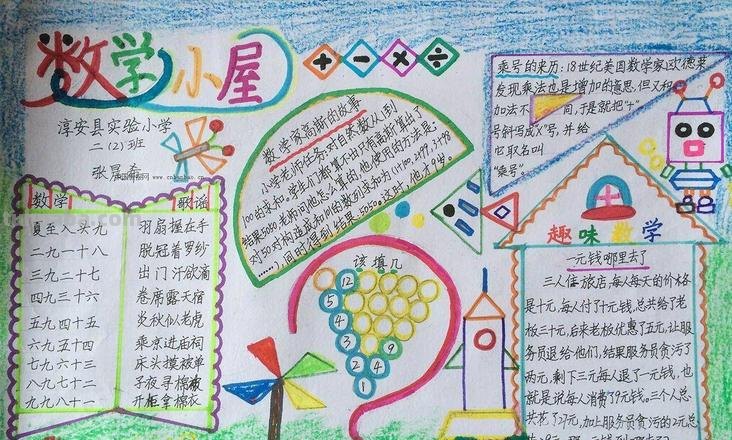 数学小屋
淳安县实验小学
二(2)班
数学 歌谣
夏至入头九 羽扇握在手
二九一十八 脱冠着罗纱
三九二十七 出门汗欲滴
四九三十六 卷席露天宿
五九四十五 炎秋似老虎
六九五十四 乘凉进庙祠
七九六十三 床头摸被单
八九七十二 子夜寻棉被
九九八十一 开柜拿棉衣
+ - × ÷
数学家高斯的故事
小学老师任务:对自然数从1到
100的求和。学生们都算不出只有高斯算出了
结果5050。老师问他怎么算的,他使用的方法是:
对50对构造成和101的数列求和为(1+100,2+99,3+98
……),同时得到结果:5050。这时,他才9岁。
该填几
12
5
4
3 9
2 4
1
乘号的来历:18世纪美国数学家欧德莱
发现乘法也是增加的意思,但又和
加法不同,于是就把"+"
号斜写成"X"号,并给
它取名叫
"乘号"。
趣味数学
一元钱哪里去了
三人住旅店,每人每天的价格
是十元,每人付了十元钱,总共给了老
板三十元,后来老板优惠了五元,让服
务员退给他们,结果服务员贪污了
两元,剩下三元每人退了一元钱,也
就是说每人消费了9元钱。三个人总
共花了27元,加上服务员贪污的2元总